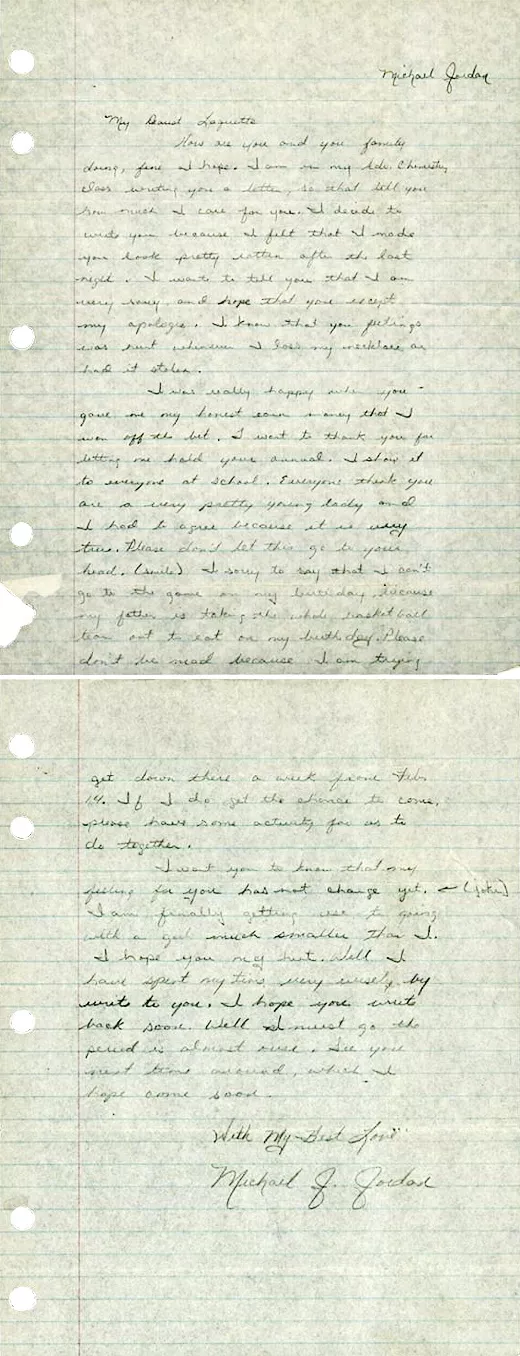 Michael Jordan
My Dearest Laquette
How are you and you family
doing, fine I hope. I am in my Adv. Chemistry
class writing you a letter, so that tell you
how much I care for you. I decide to
write you because I felt that I made
you look pretty rotten after the last
night. I want to tell you that I am
very sorry, and hope that you except
my apologie. I know that you feelings
was hurt whenever I loss my necklace or
had it stolen.
I was really happy when you
gave me my honest earn money that I
won off the bet. I want to thank you for
letting me hold your annual. I show it
to everyone at school. Everyone think you
are a very pretty young lady and
I had to agree because it is very
true. Please don't let this go to your
head. (smile) I sorry to say that I can't
go to the game on my birthday because
my father is taking the whole basketball
team out to eat on my birthday. Please
don't be mad because I am trying
get down there a week from Feb.
14. If I do get the chance to come,
please have some activity for us to
do together.
I want you to know that my
feeling for you has not change yet. (joke)
I am finally getting use to going
with a girl much smaller than I.
I hope you my hurt. Well I
have spent my time very wisely by
write to you. I hope you write
back soon. Well I must go the
period is almost over. See you
next time around, which I
hope come soon.
With My Best Love
Michael J. Jordan